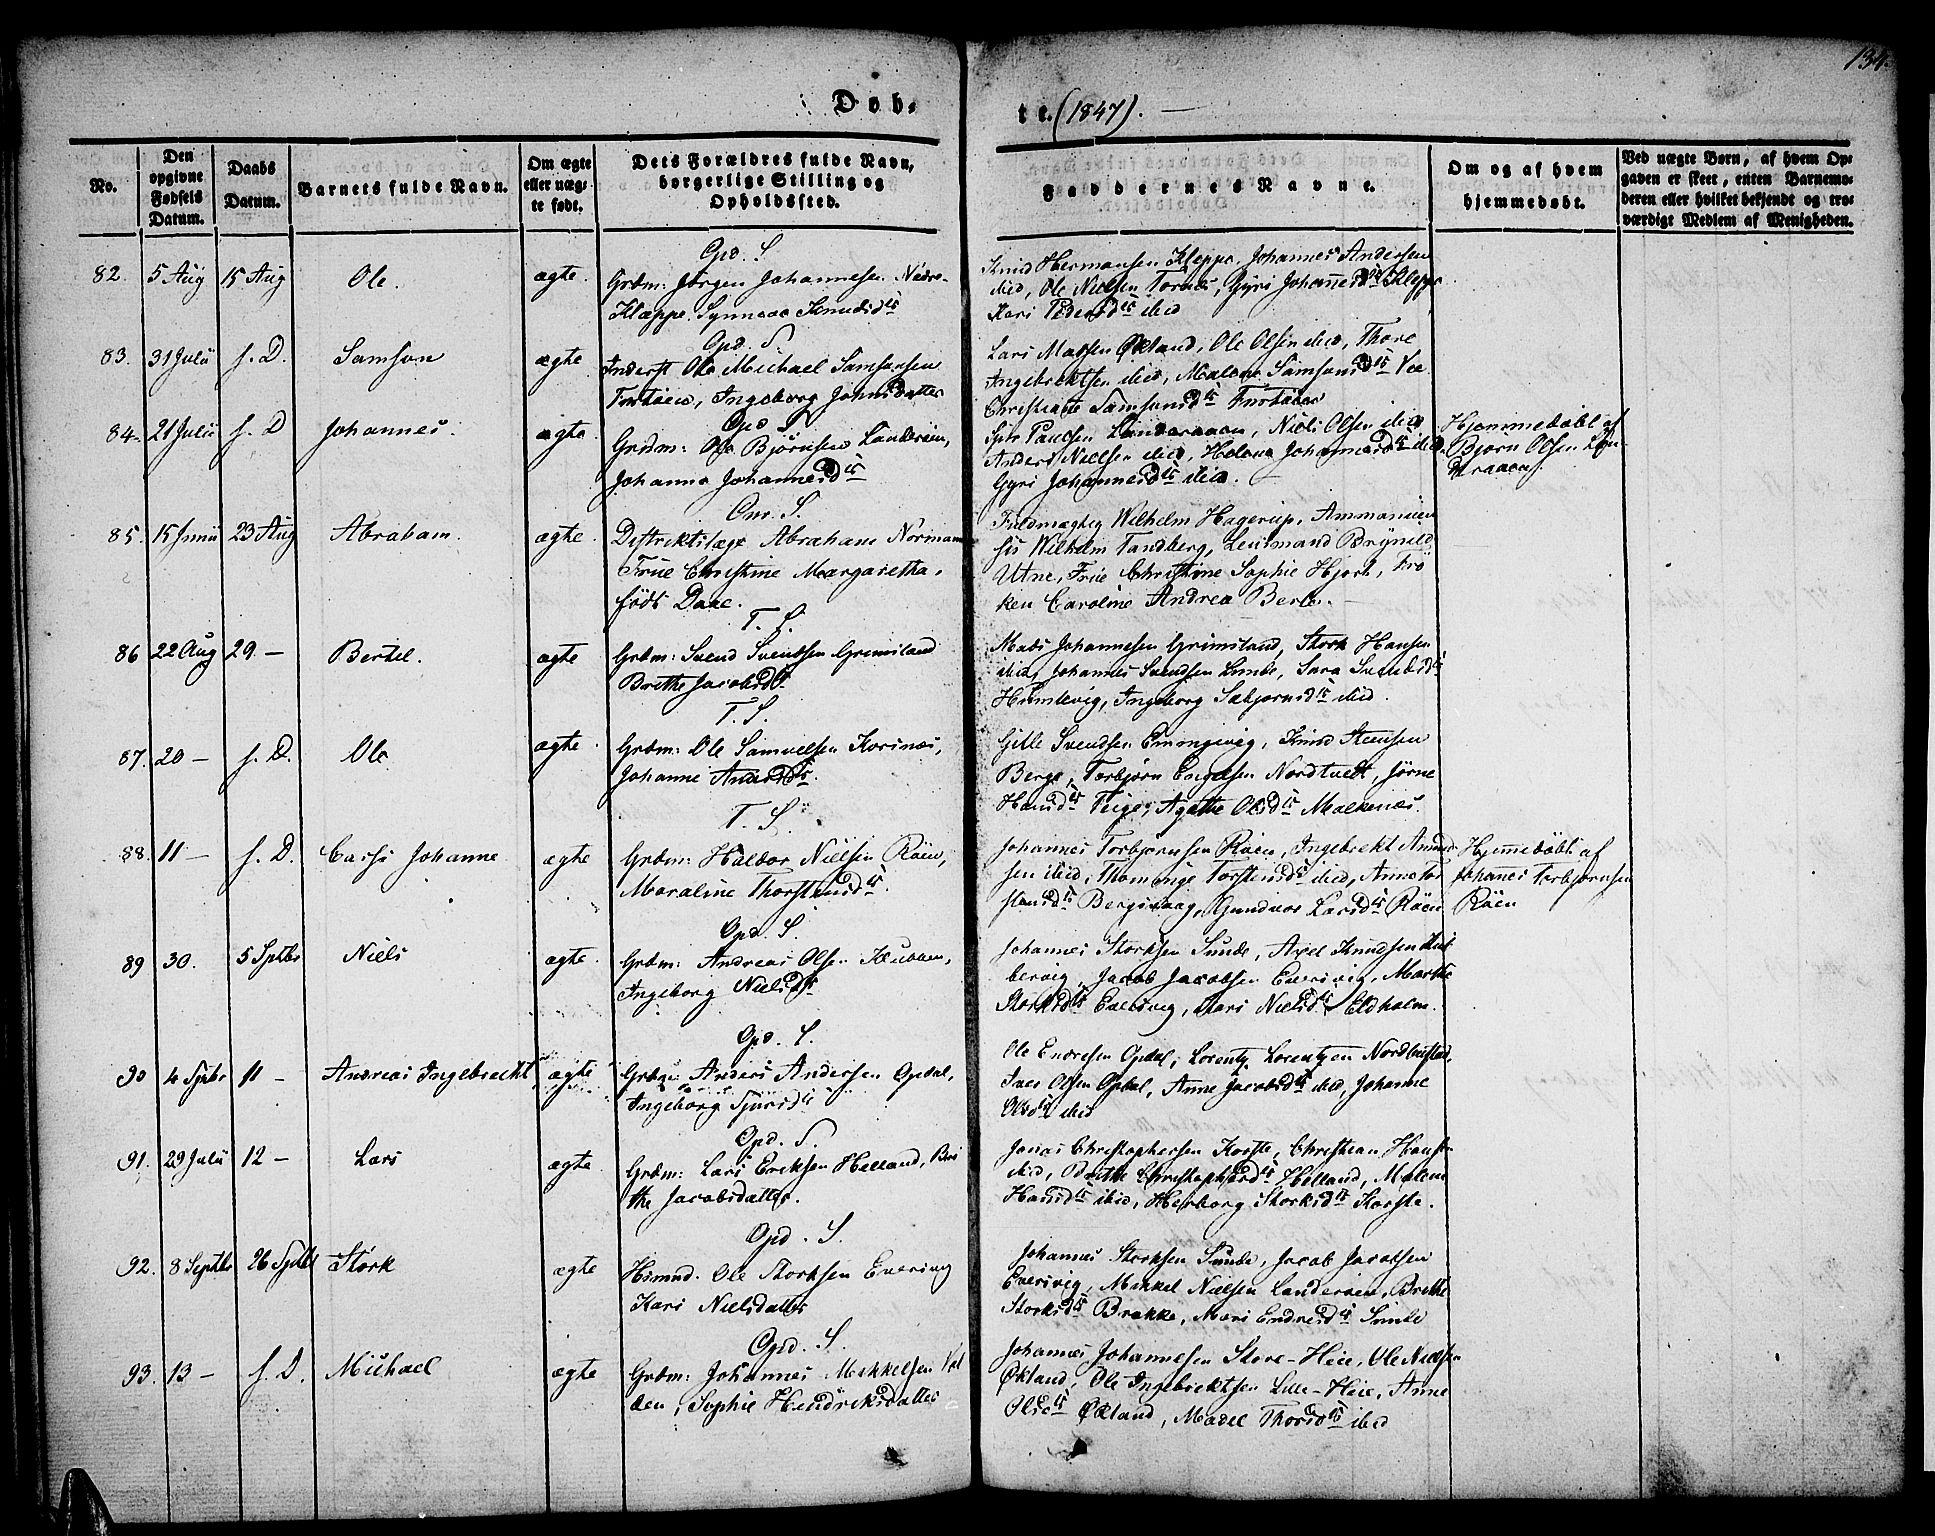 134.
Døb-
te. (1847). —
No.
Den opgivne Fødsels Datum.
Daabs Datum.
Barnets fulde Navn.
Om ægte eller uæg-te født.
Dets Forældres fulde Navn, borgerlige Stilling og Opholdssted.
Faddernes Navne.
Om og af hvem hjemmedøbt.
Ved uægte Børn, af hvem Op-gaven er skeet, enten Barnemo-deren eller hvilket bekjendt og tro-værdigt Medlem af Menigheden.
Opd. S
82. 5 Aug 15 Aug Ole. ægte
Grdm: Jørgen Johannesen Nedre-
Kleppe. Synneve Knudsdtr
Knud Hermansen Kleppe, Johannes Andersen
ibid, Ole Nielsen Tornæs, Gyri Johannesdtr Kleppe
Kari Pedersdtr ibid
Opd. S.
83. 31 Julii s. D. Samson ægte
Inderst Ole Michael Samsonsen
Ingeborg Johnsdatter
Lars Madsen Økland, Ole Olsen ibid, Thore
Ingebrektsen ibid, Malene Samsonsdtr
Christiane Samsonsdtr
Opd. S
84. 21 Julii s. D Johannes. ægte.
Grdm: Ole Bjørnsen Landeraaen,
Johanna Johannesdtr
Paulsen Landeraaen, Niels Olsen ibid
Anders Nielsen ibid, Helena Johannesdtr ibid
Gyri Johannesdtr ibid.
Hjemmedøbt af
Bjørn Olsen Lan-
deraaen
Onr. S.
85. 15 Junii 23 Aug Abraham. ægte.
Distriktslæge Abraham Normann
Frue Christine Margaretha,
født Daae.
Fuldmægtig Wilhelm Hagerup, Ammanuen-
sis Wilhelm Tandberg, Lensmand Brynild
Utne, Frue Christine Sophie Hjort, Frø
ken Caroline Andrea Berle. —
T. S.
86 22 Aug 29 — Bertel. ægte
Grdm: Svend Svendsen Grimsland
Brithe Jacobsdtr
Mads Johannesen Grimsland, Stork Hansen
ibid, Johannes Svendsen Lunde, Sara Svendsdtr
Humlevig, Ingeborg Sæbjørnsdtr ibid.
T. S.
87. 20 — s. D. Ole ægte.
Grdm: Ole Samuelsen Korsnæs,
Johanne
Gitle Svendsen Emmgevig, Knud Steensen
Berge, Torbjørn Engelsen Nordtvedt, Jørne
Hansdtr Teige, Agathe Olsdtr Malkenæs.
T. S.
88. 11 — s. D. Johanne ægte
Grdm: Haldor Nielsen Röen,
Maraline Thorsteinsdtr.
Johannes Torbjørnsen Röen, Ingebrekt Amund-
sen ibid, Torstensdtr ibid, Anne Tor
stensdtr Bergsvaag, Gundvor Larsdtr Röen
Hjemmedøbt af
Johannes Torbjørnsen
Röen
Opd. S.
89 30. 5 Septbr Niels ægte.
Grdm: Andreas Olsen
Ingeborg Nielsdtr
Johannes Storksen Sunde, Axel Knudsen Hut
bervig, Jacob Jacobsen Eversvig, Marthe
Storksdtr Eversvig, Kari Nielsdtr Eldholm.
Opd. S.
90 4 Septbr 11 — Andreas Ingebrecht ægte
Grdm: Anders Andersen Opdal,
Ingeborg Sjursdtr
Ole Endresen Opdal, Lorentz Lorentzen Nordhustad,
Iver Olsen Opdal, Anne Jacobsdtr ibid, Johanne
Olsdtr ibid
Opd. S.
91. 29 Julii 12 — Lars ægte
Grdm: Lars Eriksen Helland, Bri
the Jacobsdatter.
Jonas Christophersen Korste, Christian Hans
ibid, Brithe Christophersdtr Helland, Malene
Hansdtr ibid, Herborg Storksdtr Korste.
Opd. S.
92. 8 Septbr 26 Septbr Störk ægte
Huusmd. Ole Storksen Eversvig
Kari Nielsdatter
Johannes Storksen Sunde, Jacob Jacobsen
Eversvig, Mikkel Nielsen Landeraaen, Brithe
Storksdtr Brekke, Mari Endresdtr Sunde
Opd. S.
93. 13 — s. D. Michael ægte
Grdm: Johannes Mikkelsen Val
den, Sophie Hendriksdatter
Johannes Johannesen Store-Heie, Ole Nielsen
Økland, Ole Ingebrektsen Lille-Heie, Anne
Olsdtr Økland, Madel Thorsdtr ibid